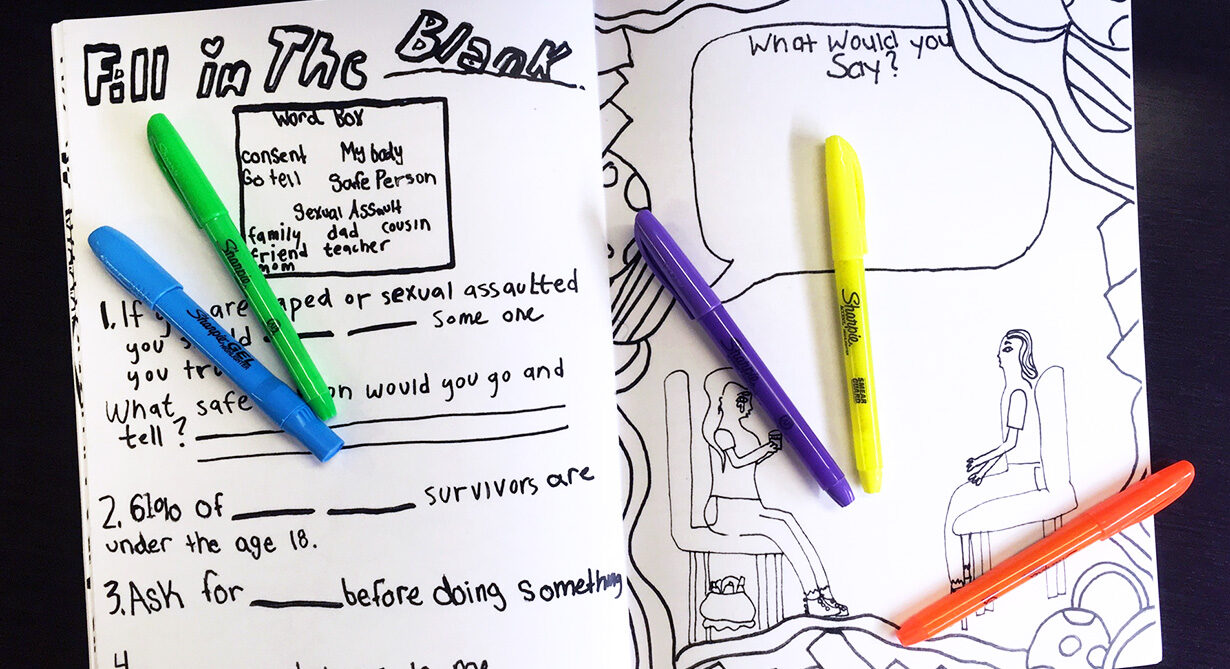 Fill in The Blank
Word Box
consent My body
Go tell Safe Person
Sexual Assault
family dad cousin
friend teacher
mom
1. If are or sexual assaulted
you some one
you
What safe would you go and
tell?
2. 61% of survivors are
under the age 18.
3. Ask for before doing something
4.
What Would you
Say?
Sharpie
Sharpie GEL
Sharpie
SMEAR GUARD